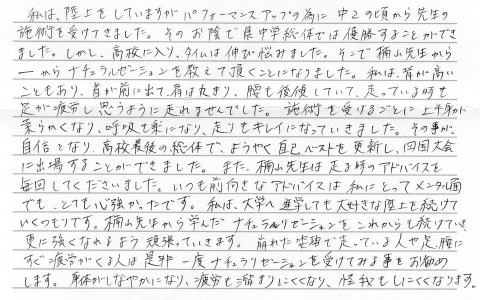 私は、陸上をしていますがパフォーマンスアップの為に中2の頃から先生の
施術を受けてきました。そのお陰で県中学総体では優勝することができ
ました。しかし、高校に入り、タイムは伸び悩みました。そこで楠山先生から
一からナチュラルゼーションを教えて頂くことになりました。私は、背が高い
こともあり、首が前に出て、肩は丸まり、腰も後傾していて、走っている時も
足が疲労し思うように走れませんでした。施術を受けるごとに上半身が
柔らかくなり、呼吸も楽になり、走りもキレイになっていきました。その事が、
自信となり、高校最後の総体で、ようやく自己ベストを更新し、四国大会
に出場することができました。また、楠山先生は走る時のアドバイスを
毎回してくださいました。いつも前向きなアドバイスは私にとってメンタル面
でも、とても心強かったです。私は、大学へ進学しても大好きな陸上を続けて
いくつもりです。楠山先生から学んだナチュラリゼーションをこれからも続けていき
更に強くなれるよう頑張っていきます。崩れた姿勢で走っている人や足、腰に
すぐ疲労がくる人は是非一度ナチュラリゼーションを受けてみる事をお勧め
します。身体がしなやかになり、疲労も溜まりにくくなり、怪我もしにくくなります。